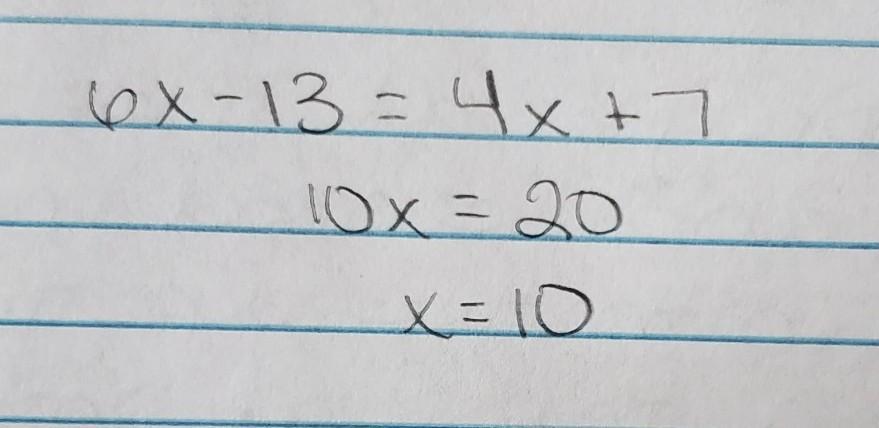 6x-13 = 4x+7
10x = 20
x=10